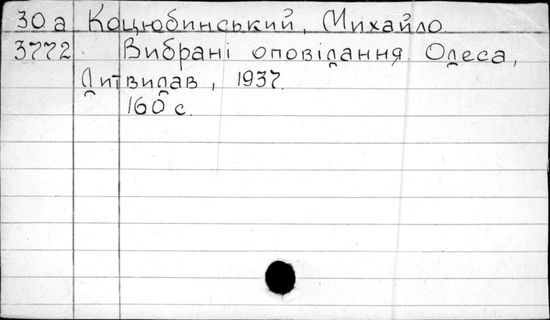 30а Коцюбинський, Михайло
3772 Вибрані оповідання. Одеса,
Дитвидав, 1937.
160 с.